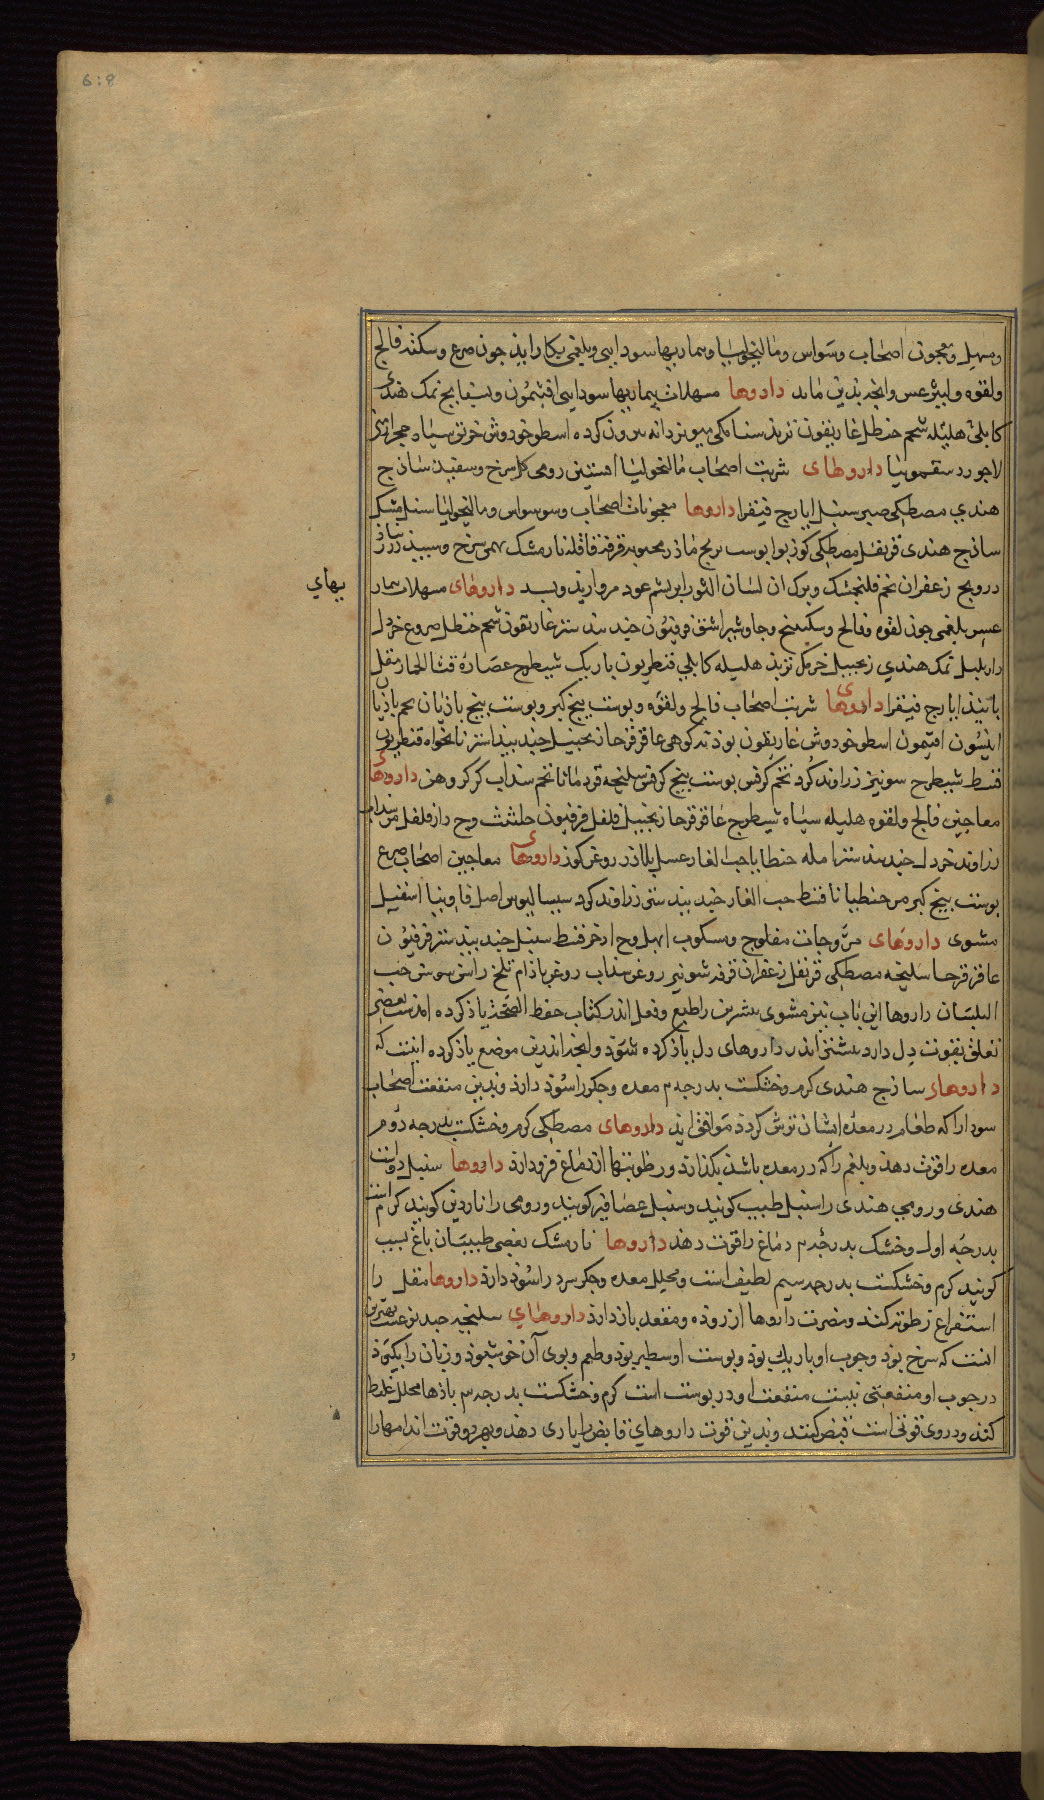 6:8
و مسهل و معجون اصحاب وسواس و مالیخولیا و بیماریهاء سودایی و بلغمی بکار آید چون صرع و سکته فالج
ولقوه و لیثرغس و انچه بدین ماند داروها مسهلات بیماریهاء سودایی افتیمون و بسفایج نمک هندی
کابلی هلیله شحم حنظل غاریقون تربد سناء مکی میویز دانه بیرون کرده اسطوخودوش خربق سیاه حجر ارمنی
لاجورد سقمونیا داروهای شربت اصحاب مالیخولیا افسنتین رومی کل سرخ و سفید ساذج
هندی مصطکی صبر سنبل ایارج فیقرا داروها معجونات اصحاب وسواس و مالیخولیا سنبل مشک
ساذج هندی قرنفل مصطکی کوز بوا پوست ترنج قرفه قاقله نارمشک بهمن سرخ و سپید زرنباذ
درونج زعفران تخم فلنجمشک و برک ان لسان الثور ابریشم عود مروارید و بسد داروهای مسهلات بیمار
یهای
بلغمی چون لقوه و فالج و سکبینج و جاوشیر اشق فرفیون غاریقون شحم حنظل خردل
دارپلپل نمک هندی زنجبیل حرمل تربد هلیله کابلی قنطریون باریک شیطرج عصاره قثاالحمار مقل
ایارج فیقرا داروهای شربت اصحاب فالج و لقوه و پوست بیخ کبر و پوست بیخ باذیان تخم باذیان
انیسون افتیمون اسطوخودوش غاریقون بوذنه کوهی عاقرقرحا زنجبیل جندبیدستر نانخواه قنطریون
قسط شیطرج سونیز زراوند کرد تخم کرفس پوست بیخ کرفس سلیخه قردمانا تخم سداب داروهای
معاجین فالج و لقوه هلیله سیاه شیطرج عاقرقرحا زنجبیل فلفل فرفیون حلتیت وج دارفلفل سداب
زراوند خردل جندبیدستر امله حب الغار عسل بلاذر روغن کوز داروهای معاجین اصحاب صرع
پوست بیخ کبر قسط حب الغار جندبیدستر زراوند کرد سیسالیوس اصل فاوینا اسقیل
مشوی داروهای مروحات مفلوج و مسکوب ابهل وج اذخر قسط سنبل جندبیدستر فرفیون
عاقرقرحا سلیخه مصطکی قرنفل زعفران قرفه شونیز روغن سذاب روغن باذام تلخ حب
البلسان داروها این باب نیز اندر کتاب حفظ الصحة یاذ کرده امذست بعضی
تعلق بقوت دل دارد اندر داروهای دل یاذ کرده شوذ و انچه اندرین موضع یاذ کرده اینست که
داروها ساذج هندی کرم و خشکست بدرجه معده و جکر را سوذ دارد و بدین منفعت اصحاب
سودا را که طعام در معده ایشان ترش کردد موافق اید داروهای مصطکی کرم و خشکست بدرجه دوم
معده را قوت دهد و بلغم را که در معده باشذ بکذارد و رطوبتها از دماغ فروذ آرذ داروها سنبل دو است
هندی و رومی هندی را سنبل طیب کویند و سنبل عصافیر کویند و رومی را ناردین کویند کرم است
بدرجه اول و خشک بدرجه دماغ را قوت دهد داروها نارمشک بعضی طبیبان
کویند کرم و خشکست بدرجه سیم لطیف است و محلل معده و جکر سرد را سوذ دارد داروها مقل را
استفراغ رطوبت کنند و مضرت داروها از روذه و مقعد باز دارد داروهای سلیخه چند نوعست بهترین
انست که سرخ بوذ و چوب او باریک بوذ و پوست او سطبر بوذ و طعم و بوی آن خوش بوذ و زبان را بکزد
در چوب او منفعتی نیست منفعت او در پوست است کرم و خشکست بدرجه باذها محلل غلیظ
کند و در وی قوتی است قبض کننده و بدین قوت داروهای قابض را یاری دهد و قوت اندامها را